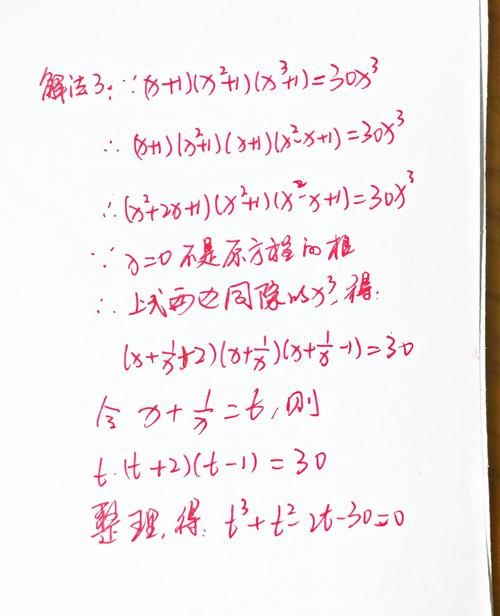 解法3:∵(x+1)(x²+1)(x³+1)=30x³
∴(x+1)(x²+1)(x+1)(x²-x+1)=30x³
∴(x²+2x+1)(x²+1)(x²-x+1)=30x³
∵x=0不是原方程的根
∴上式两边同除以x³,得:
(x+1/x+2)(x+1/x)(x+1/x-1)=30
令x+1/x=t,则
t·(t+2)(t-1)=30
整理,得:t³+t²-2t-30=0